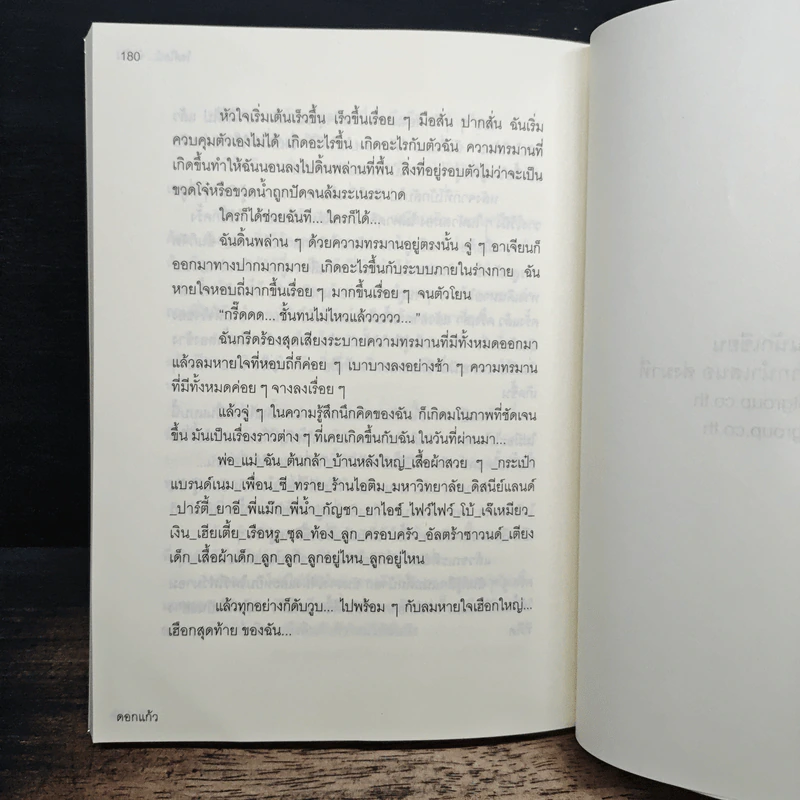 180
หัวใจเริ่มเต้นเร็วขึ้น เร็วขึ้นเรื่อย ๆ มือสั่น ปากสั่น ฉันเริ่ม
ควบคุมตัวเองไม่ได้ เกิดอะไรขึ้น เกิดอะไรกับตัวฉัน ความทรมานที่
เกิดขึ้นทำให้ฉันนอนลงไปดิ้นพล่านที่พื้น สิ่งที่อยู่รอบตัวไม่ว่าจะเป็น
ขวดโจ๋หรือขวดน้ำถูกปัดจนล้มระเนระนาด
ใครก็ได้ช่วยฉันที... ใครก็ได้...
ฉันดิ้นพล่าน ๆ ด้วยความทรมานอยู่ตรงนั้น จู่ ๆ อาเจียนก็
ออกมาทางปากมากมาย เกิดอะไรขึ้นกับระบบภายในร่างกาย ฉัน
หายใจหอบถี่มากขึ้นเรื่อย ๆ มากขึ้นเรื่อย ๆ จนตัวโยน
“กรี๊ดดด... ชั้นทนไม่ไหวแล้วววว... ”
ฉันกรีดร้องสุดเสียงระบายความทรมานที่มีทั้งหมดออกมา
แล้วลมหายใจที่หอบถี่ก็ค่อย ๆ เบาบางลงอย่างช้า ๆ ความทรมาน
ที่มีทั้งหมดค่อย ๆ จางลงเรื่อย ๆ
แล้วจู่ ๆ ในความรู้สึกนึกคิดของฉัน ก็เกิดมโนภาพที่ชัดเจน
ขึ้น มันเป็นเรื่องราวต่าง ๆ ที่เคยเกิดขึ้นกับฉัน ในวันที่ผ่านมา...
พ่อ_แม่_ฉัน_ต้นกล้า_บ้านหลังใหญ่_เสื้อผ้าสวย ๆ _กระเป๋า
แบรนด์เนม_เพื่อน_ซี_ทราย_ร้านไอติม_มหาวิทยาลัย_ดิสนีย์แลนด์
_ปาร์ตี้_ยาอี_พี่แม๊ก_พี่น้ำ_กัญชา_ยาไอซ์_ไฟว์ไฟว์_โบ้_เจ๊เหมียว_
เงิน_เฮียเตี้ย_เรือหรู_ซุล_ท้อง_ลูก_ครอบครัว_อัลตร้าซาวนด์_เตียง
เด็ก_เสื้อผ้าเด็ก_ลูก_ลูก_ลูกอยู่ไหน_ลูกอยู่ไหน
แล้วทุกอย่างก็ดับวูบ... ไปพร้อม ๆ กับลมหายใจเฮือกใหญ่...
เฮือกสุดท้าย ของฉัน...
ดอกแก้ว